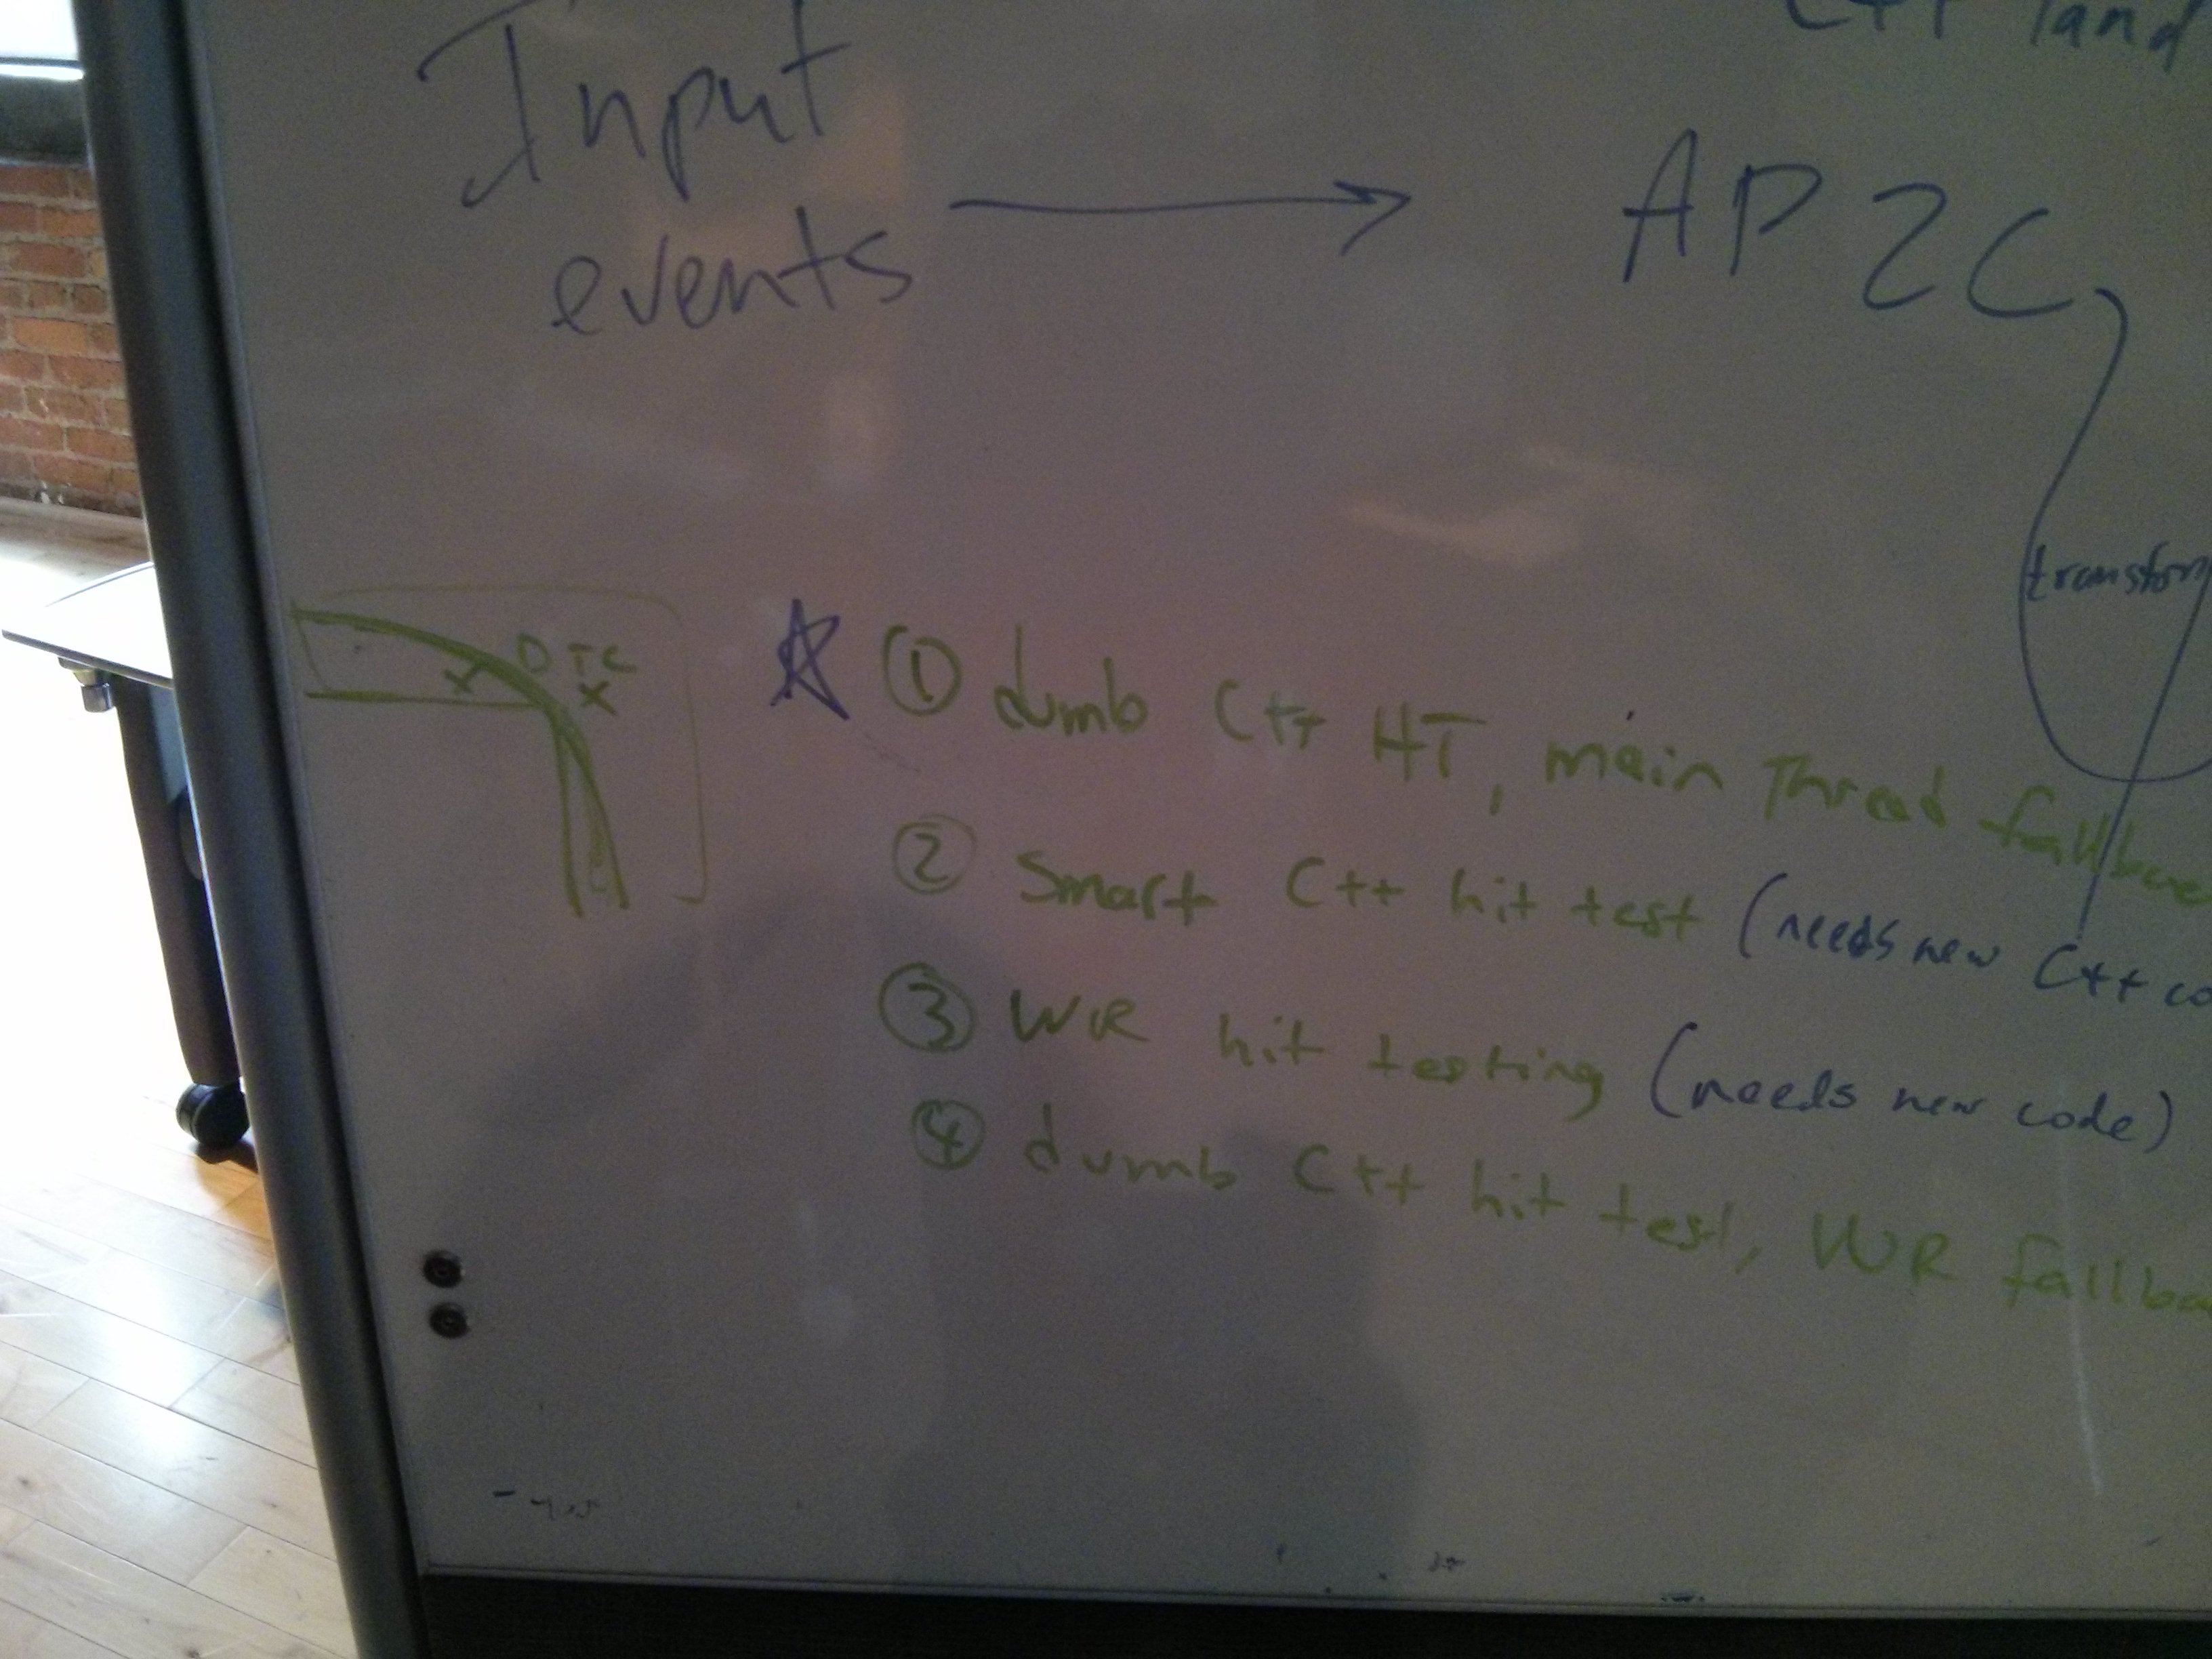 C++ land
Input
events
APZC
transform
DTC
X
X
① dumb C++ HT, main thread fallback
② Smart C++ hit test (needs new C++ co
③ WR hit testing (needs new code)
④ dumb C++ hit test, WR fallba